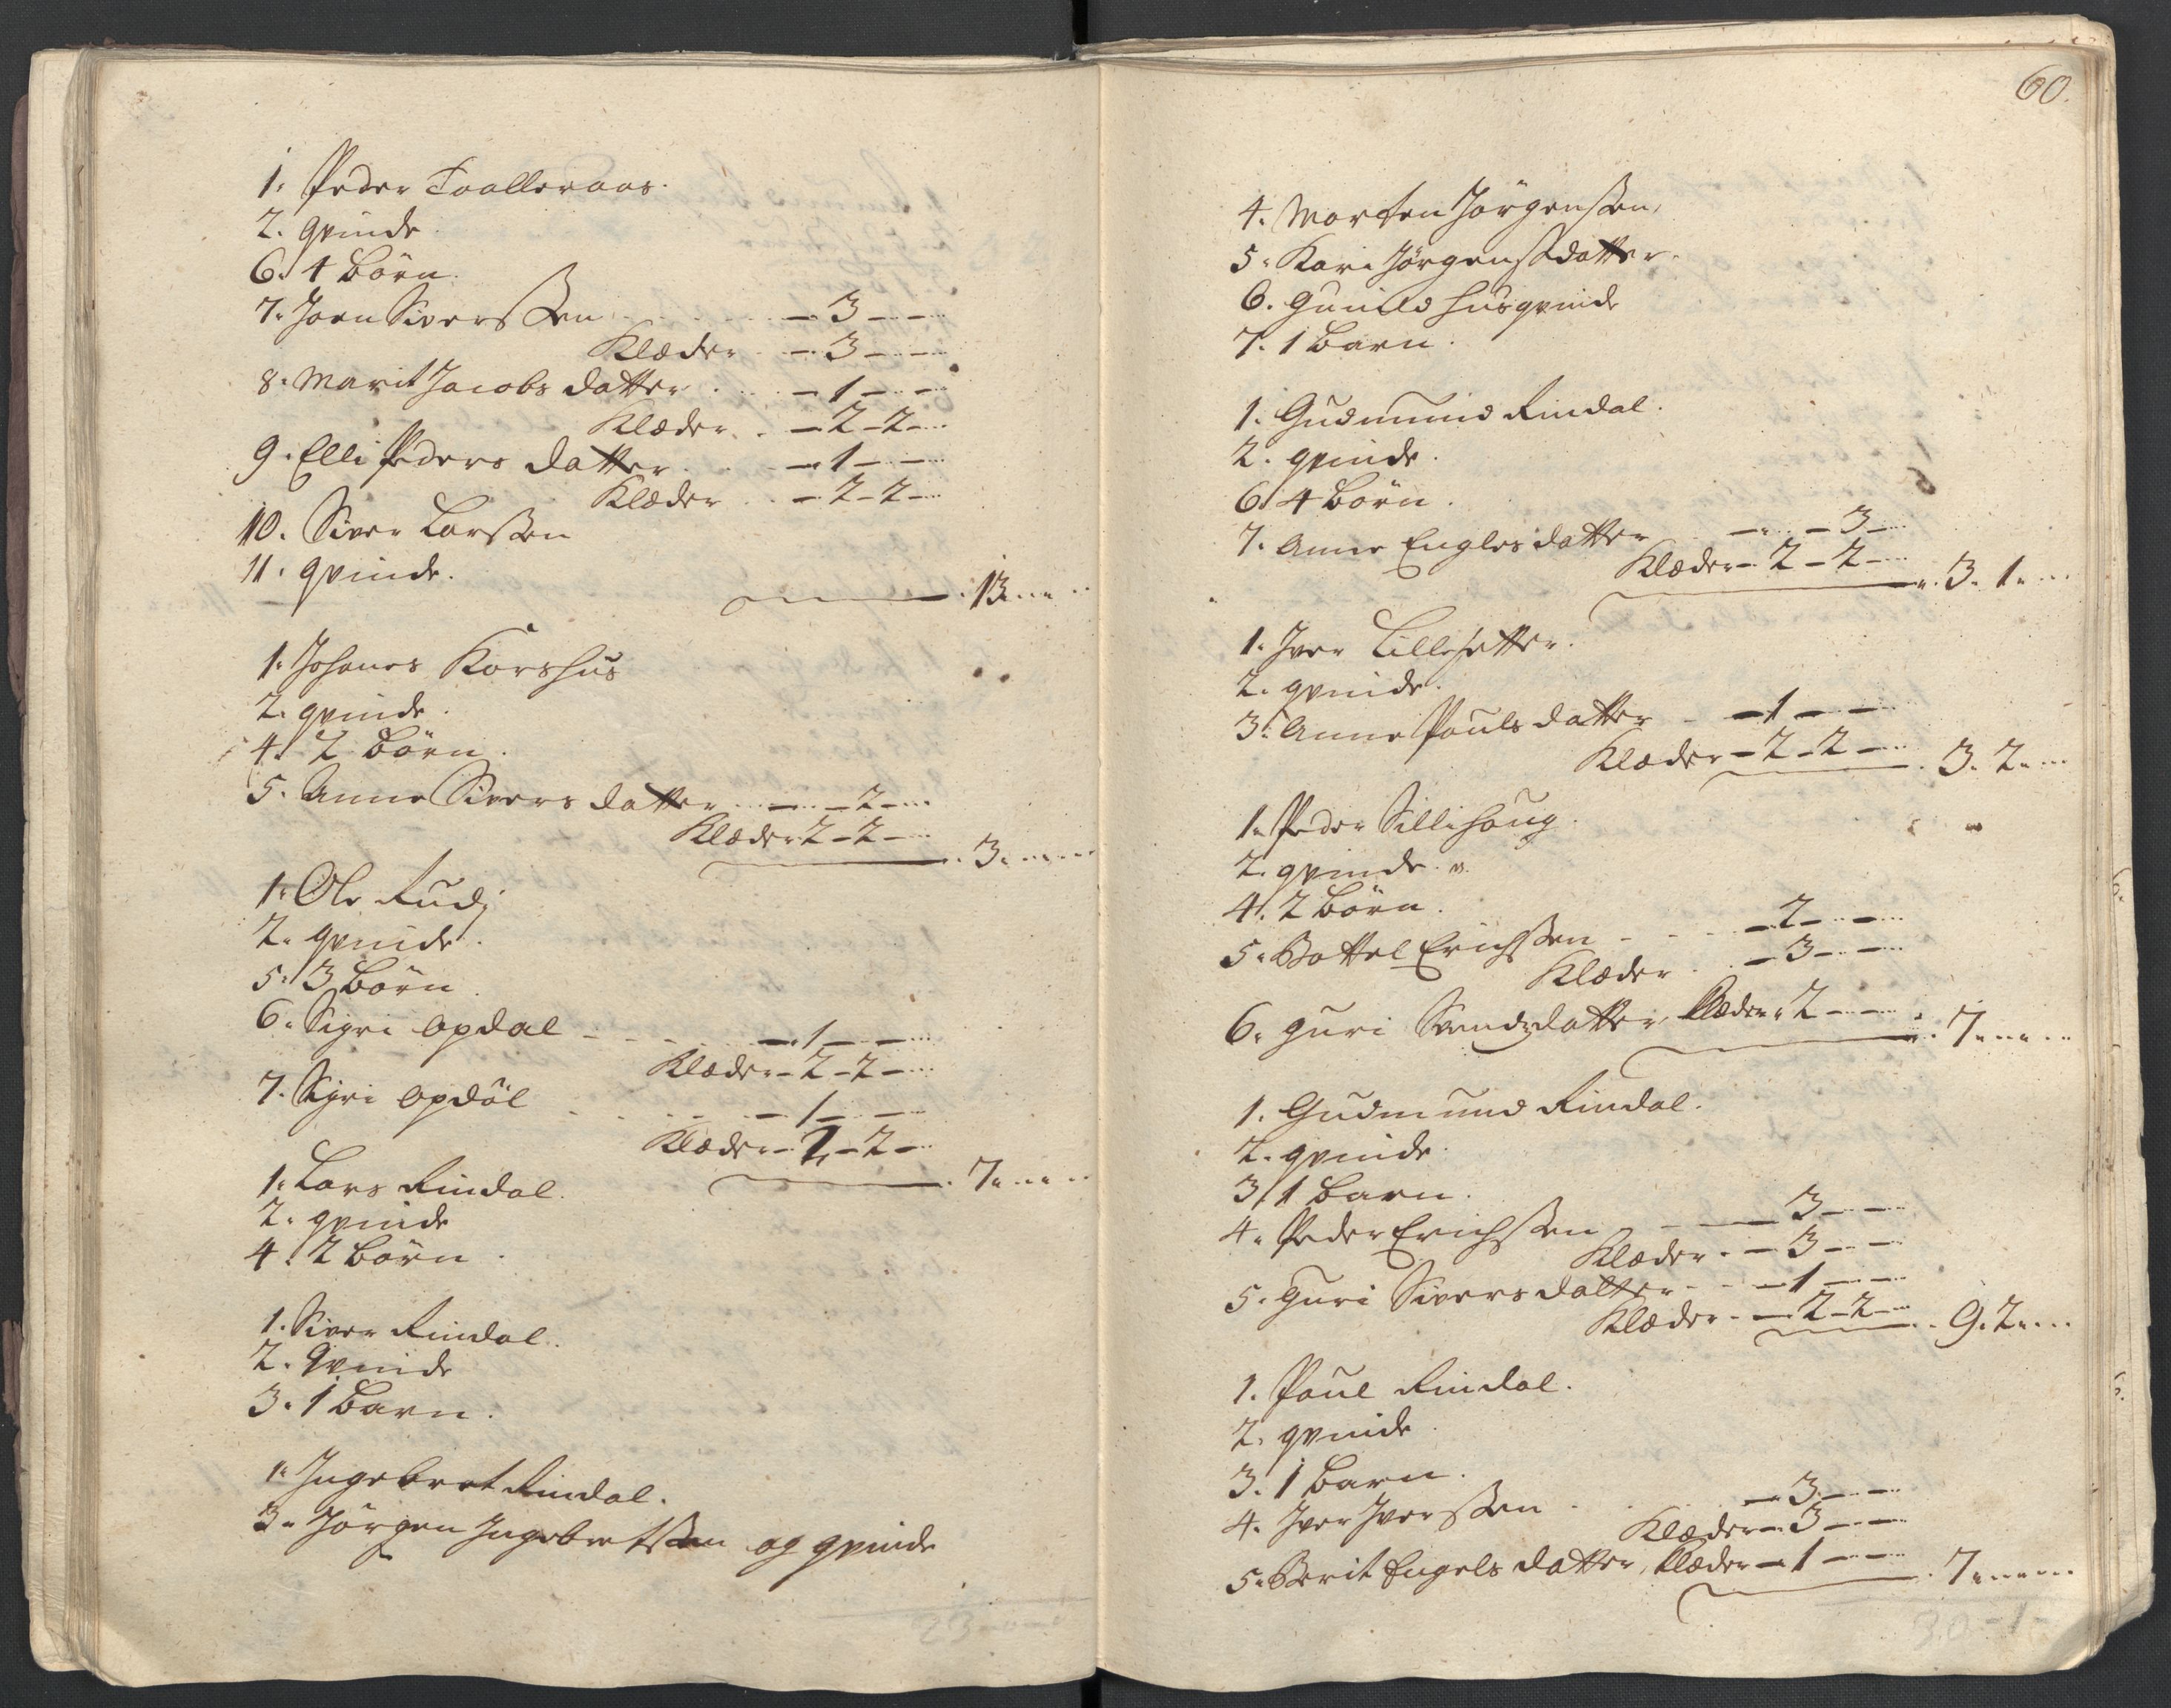 1. Peder Taalleraas.
2. qvinde
6. 4 Børn.
7. Joen Sivers Søn - 3 - -
Klæder - 3 - -
8. Marit Jacobs datter - 1 - -
Klæder - 2 - 2 -
9. Elli Peders datter - 1 - -
Klæder - 2 - 2 -
10. Siver Larssøn
11. qvinde.
13 . . .
1. Johanes Korshus
2. qvinde.
4. 2 Børn.
5. Anne Sivers datter - - 2 -
Klæder 2 - 2 -
3. - -
1. Ole Rud
2. qvinde.
5. 3 Børn
6. Sigri Opdal - 1 - -
Klæder - 2 - 2 -
7. Sigri Opdøl - 1 - -
Klæder - 2 - 2 -
7. - -
1. Lars Rindal.
2. qvinde
4. 2 Børn.
1. Siver Rindal.
2. Qvinde
3. 1 Barn.
1. Ingebret Rindal.
3. Jørgen Ingebretssøn og qvinde
23 - 0 - 0
60.
4. Morten Jørgenssøn,
5. Kari Jørgensdatter.
6. Gunild husqvinde
7. 1 Barn.
1. Gudmund Rindal.
2. qvinde.
6. 4 Børn.
7. Anne Engles datter - - 3 -
Klæder - 2 - 2 -
3. 1. -
1. Iver Lillesetter.
2. qvinde.
3. Anne Pouls datter - 1 - -
Klæder - 2 - 2 -
3. 2. -
1. Peder Sillihoug.
2. qvinde.
4. 2 Børn.
5. Bottel Erichssøn - 2 - -
Klæder - 3 - -
6. Guri Svendsdatter, Klæder 2 - -
7. - -
1. Gudmund Rindal.
2. qvinde
3. 1 Barn.
4. Peder Erichssøn - 3 - -
Klæder - 3 - -
5. Guri Sivers datter - 1 - -
Klæder - 2 - 2 -
9. 2. -
1. Poul Rindal.
2. qvinde
3. 1 Barn.
4. Iver Iverssøn - 3 - -
Klæder - 3 - -
5. Berit Engels datter, Klæder - 1 - -
7. - -
30 - 1 -